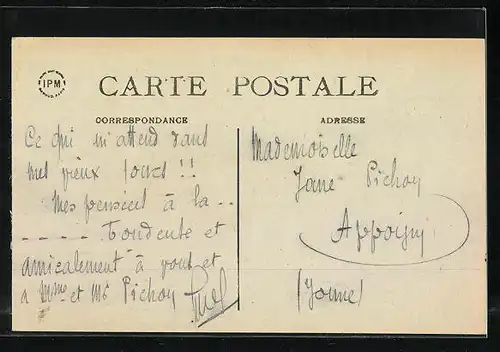 IPM
CARTE POSTALE
CORRESPONDANCE
Ce qui m'attend dans
mes vieux jours !!
Mes pensées à la --
----- Tondente et
amicalement à vous et
a Mme et Mr Pichoy
ADRESSE
Mademoiselle
Jane Pichoy
Appoigny
(Yonne)